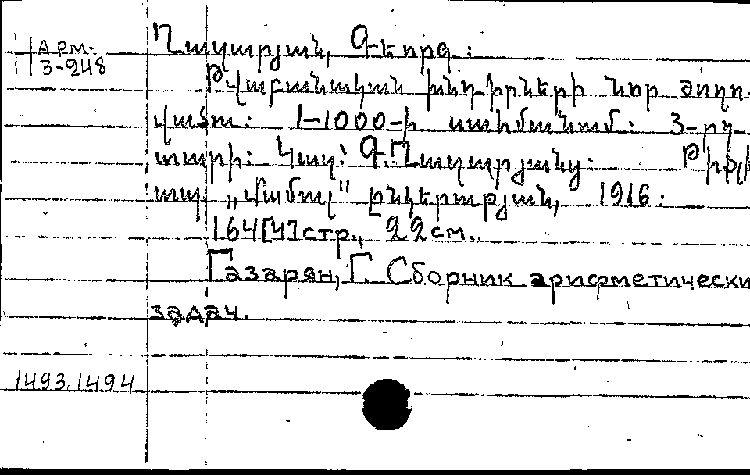 Арм.
3-248
Ղազարյան, Գեորգ :
Թվաբանական խնդիրների նոր ժողո-
վածու: 1-1000-ի սահմանում: 3-րդ
տարի: Կազ՝ Գ. Ղազարյանց: Թիֆլի
տպ. „Մամուլ" ընկերության, 1916:
164[4]стр., 22см.
Газарян, Г. Сборник арифметически
задач.
1493.1494